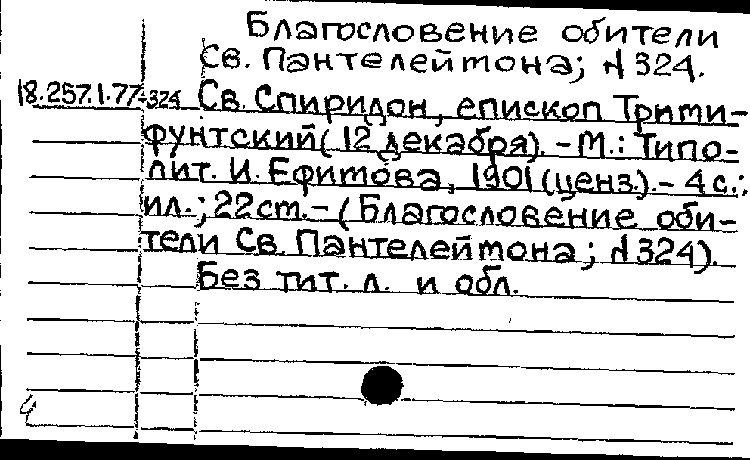 Благословение обители
Св. Пантелеймона; № 324.
18.257.1.77-324 Св. Спиридон, епископ Трими-
фунтский (12 декабря). - М.: Типо-
лит. И. Ефимова, 1901 (ценз.). - 4 с.:
ил.; 22 cm. - (Благословение оби-
тели Св. Пантелеймона; № 324).
Без тит. л. и обл.